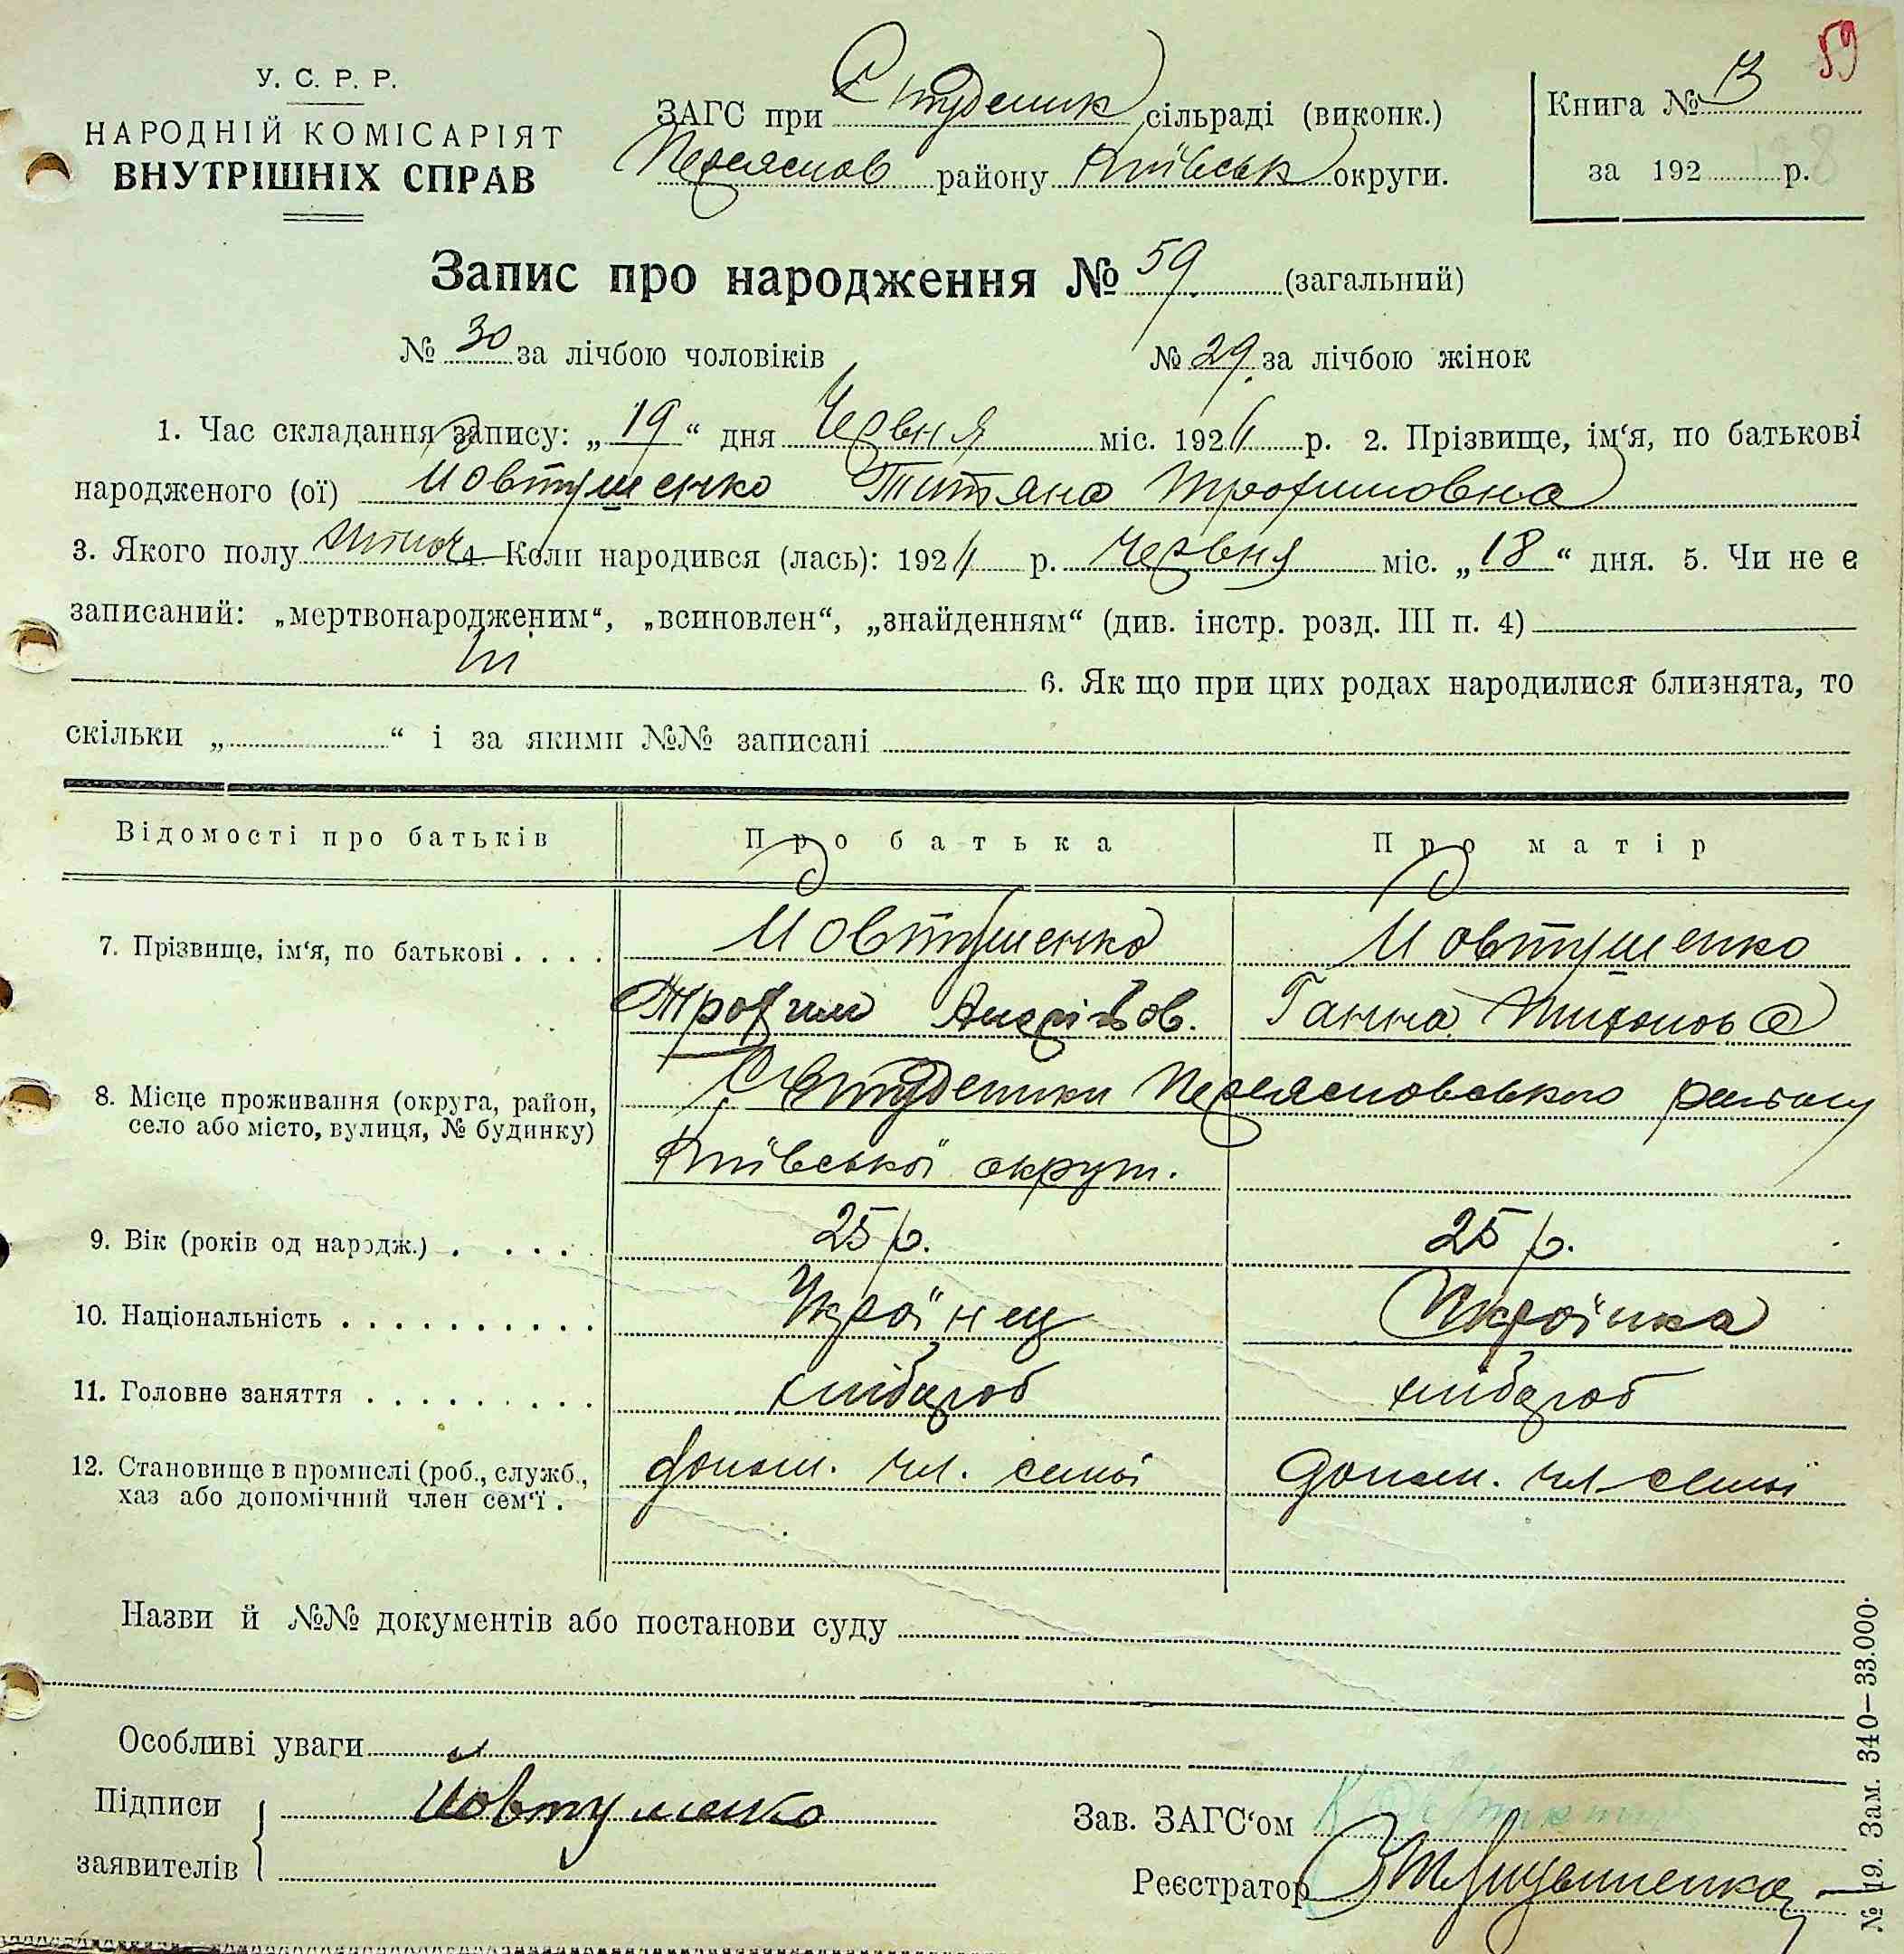 59
У. С. Р. Р.
НАРОДНІЙ КОМІСАРІЯТ
ВНУТРІШНІХ СПРАВ
ЗАГС при Студеник сільраді (виконк.)
Переяслов району Київськ округи.
Книга №
за 192 8 р.
Запис про народження № 59 (загальний)
№ 30 за лічбою чоловіків № 29 за лічбою жінок
1. Час складання запису: „19“ дня Червня міс. 192 р. 2. Прізвище, ім‘я, по батькові
народженого (ої) Иовтушенко Титяна Трофимовна
3. Якого полу жіноч 4. Коли народився (лась): 192 р. Червня міс. „18“ дня. 5. Чи не є
записаний: „мертвонародженим“, „всиновлен“, „знайденням“ (див. інстр. розд. III п. 4)
ні
6. Як що при цих родах народилися близнята, то
скільки „ “ і за якими №№ записані
Відомості про батьків Про батька Про матір
7. Прізвище, ім‘я, по батькові . . . . Иовтушенко Иовтушенко
Трофим Андріѣов. Ганна
8. Місце проживання (округа, район,
село або місто, вулиця, № будинку)
Студеники Переясловського району
Київської округи.
9. Вік (років од народж.) . . . . 25 р. 25 р.
10. Національність . . . . . . . . . . Українец Українка
11. Головне заняття . . . . . . . . . хлібороб хлібороб
12. Становище в промислі (роб., служб.,
хаз або допомічний член сем‘ї .
допом. чл. семьі допом. чл семьї
Назви й №№ документів або постанови суду
Особливі уваги
Підписи
заявителів
Йовтушенко
Зав. ЗАГС‘ом
Реєстратор
№ 19. Зам. 340—33.000.